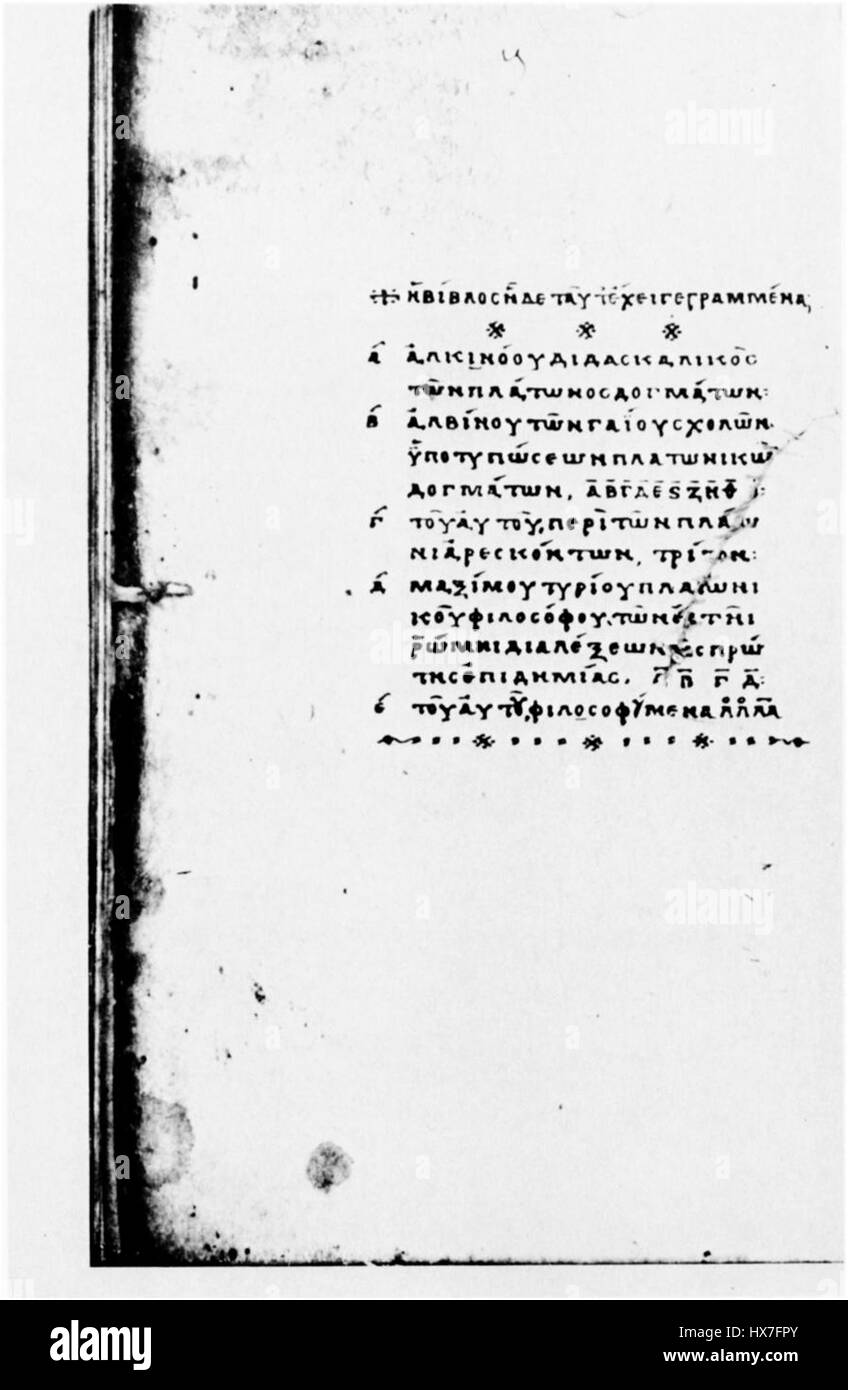 ἡ βίβλος ἥδε ταῦτ' ἔχει γεγραμμένα
ά ἀλκινόου διδασκαλικὸς
τῶν πλάτωνος δογμάτων:
β́ ἀλβίνου τῶν γαΐου σχολῶν
ὑποτυπώσεων πλατωνικῶ
δογμάτων, Α Β Γ Δ Ε Ϛ Ζ Η Θ Ι:
γ́ τοῦ αὐτοῦ, περὶ τῶν πλάτω
νι ἀρεσκόντων, τρίτον:
δ́ μαξίμου τυρίου πλατωνι
κοῦ φιλοσόφου, τῶν ἐν
ῥώμηι διαλέξεων τῆς πρώ
της ἐπιδημίας. Α Β Γ Δ:
έ τοῦ αὐτοῦ, φιλοσοφούμενα
alamy
a
Image ID: HX7FPY
www.alamy.com